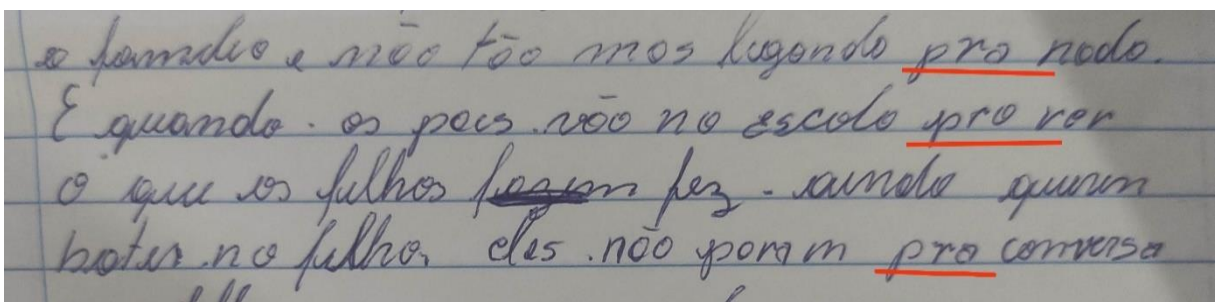 a familia e não tão mas ligando pra nada.
E quando os pais vão na escola pra ver
o que os filhos fez ainda querem
bater no filho, eles não param pra conversa